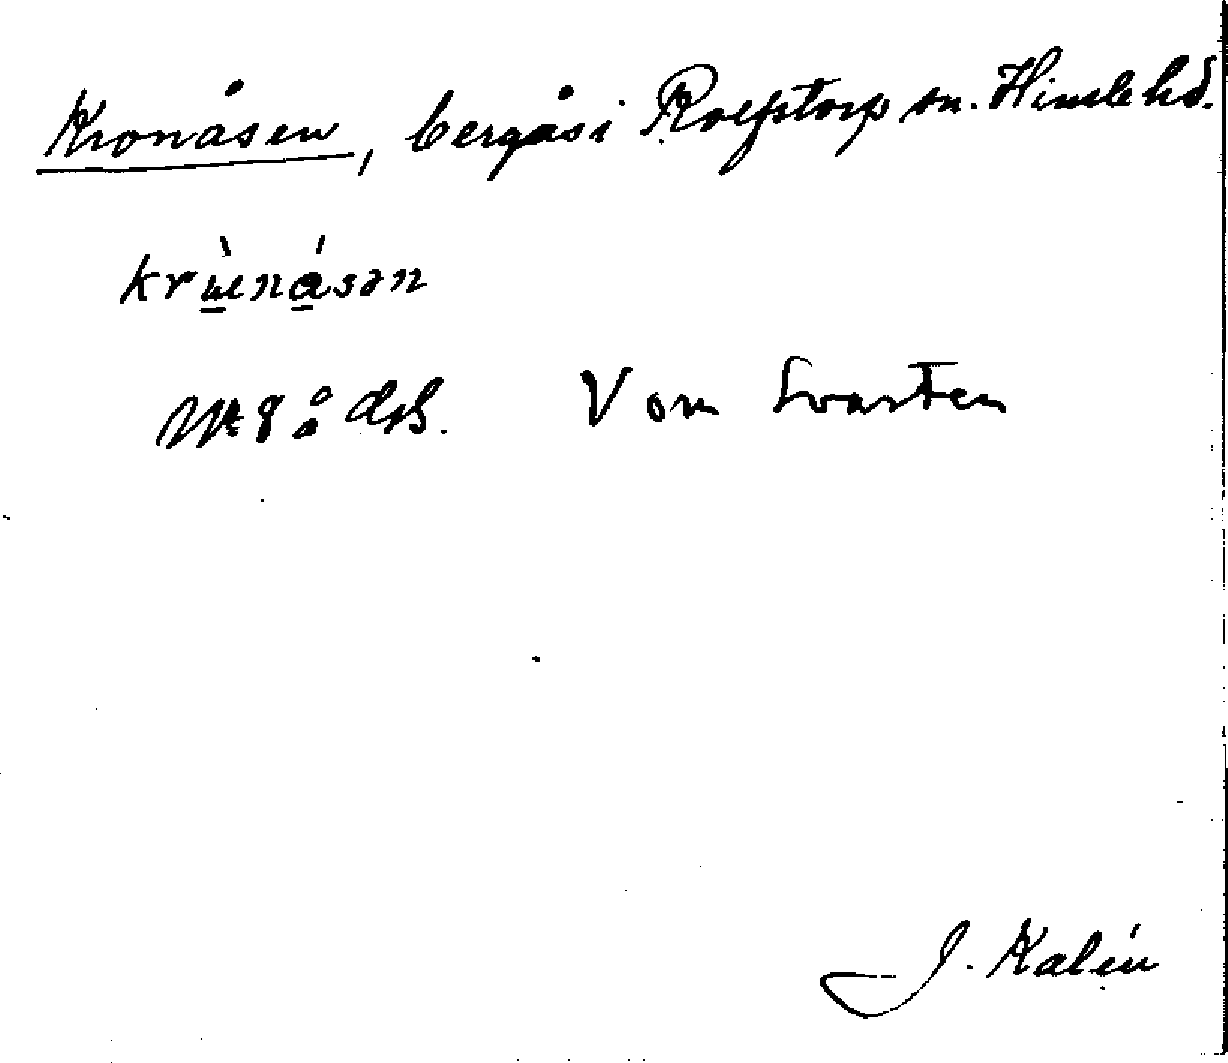 Kronåsen, bergås i Rolfstorp sn. Himle hd.
krɯ̀násən
V om Svarten
J. Kalén